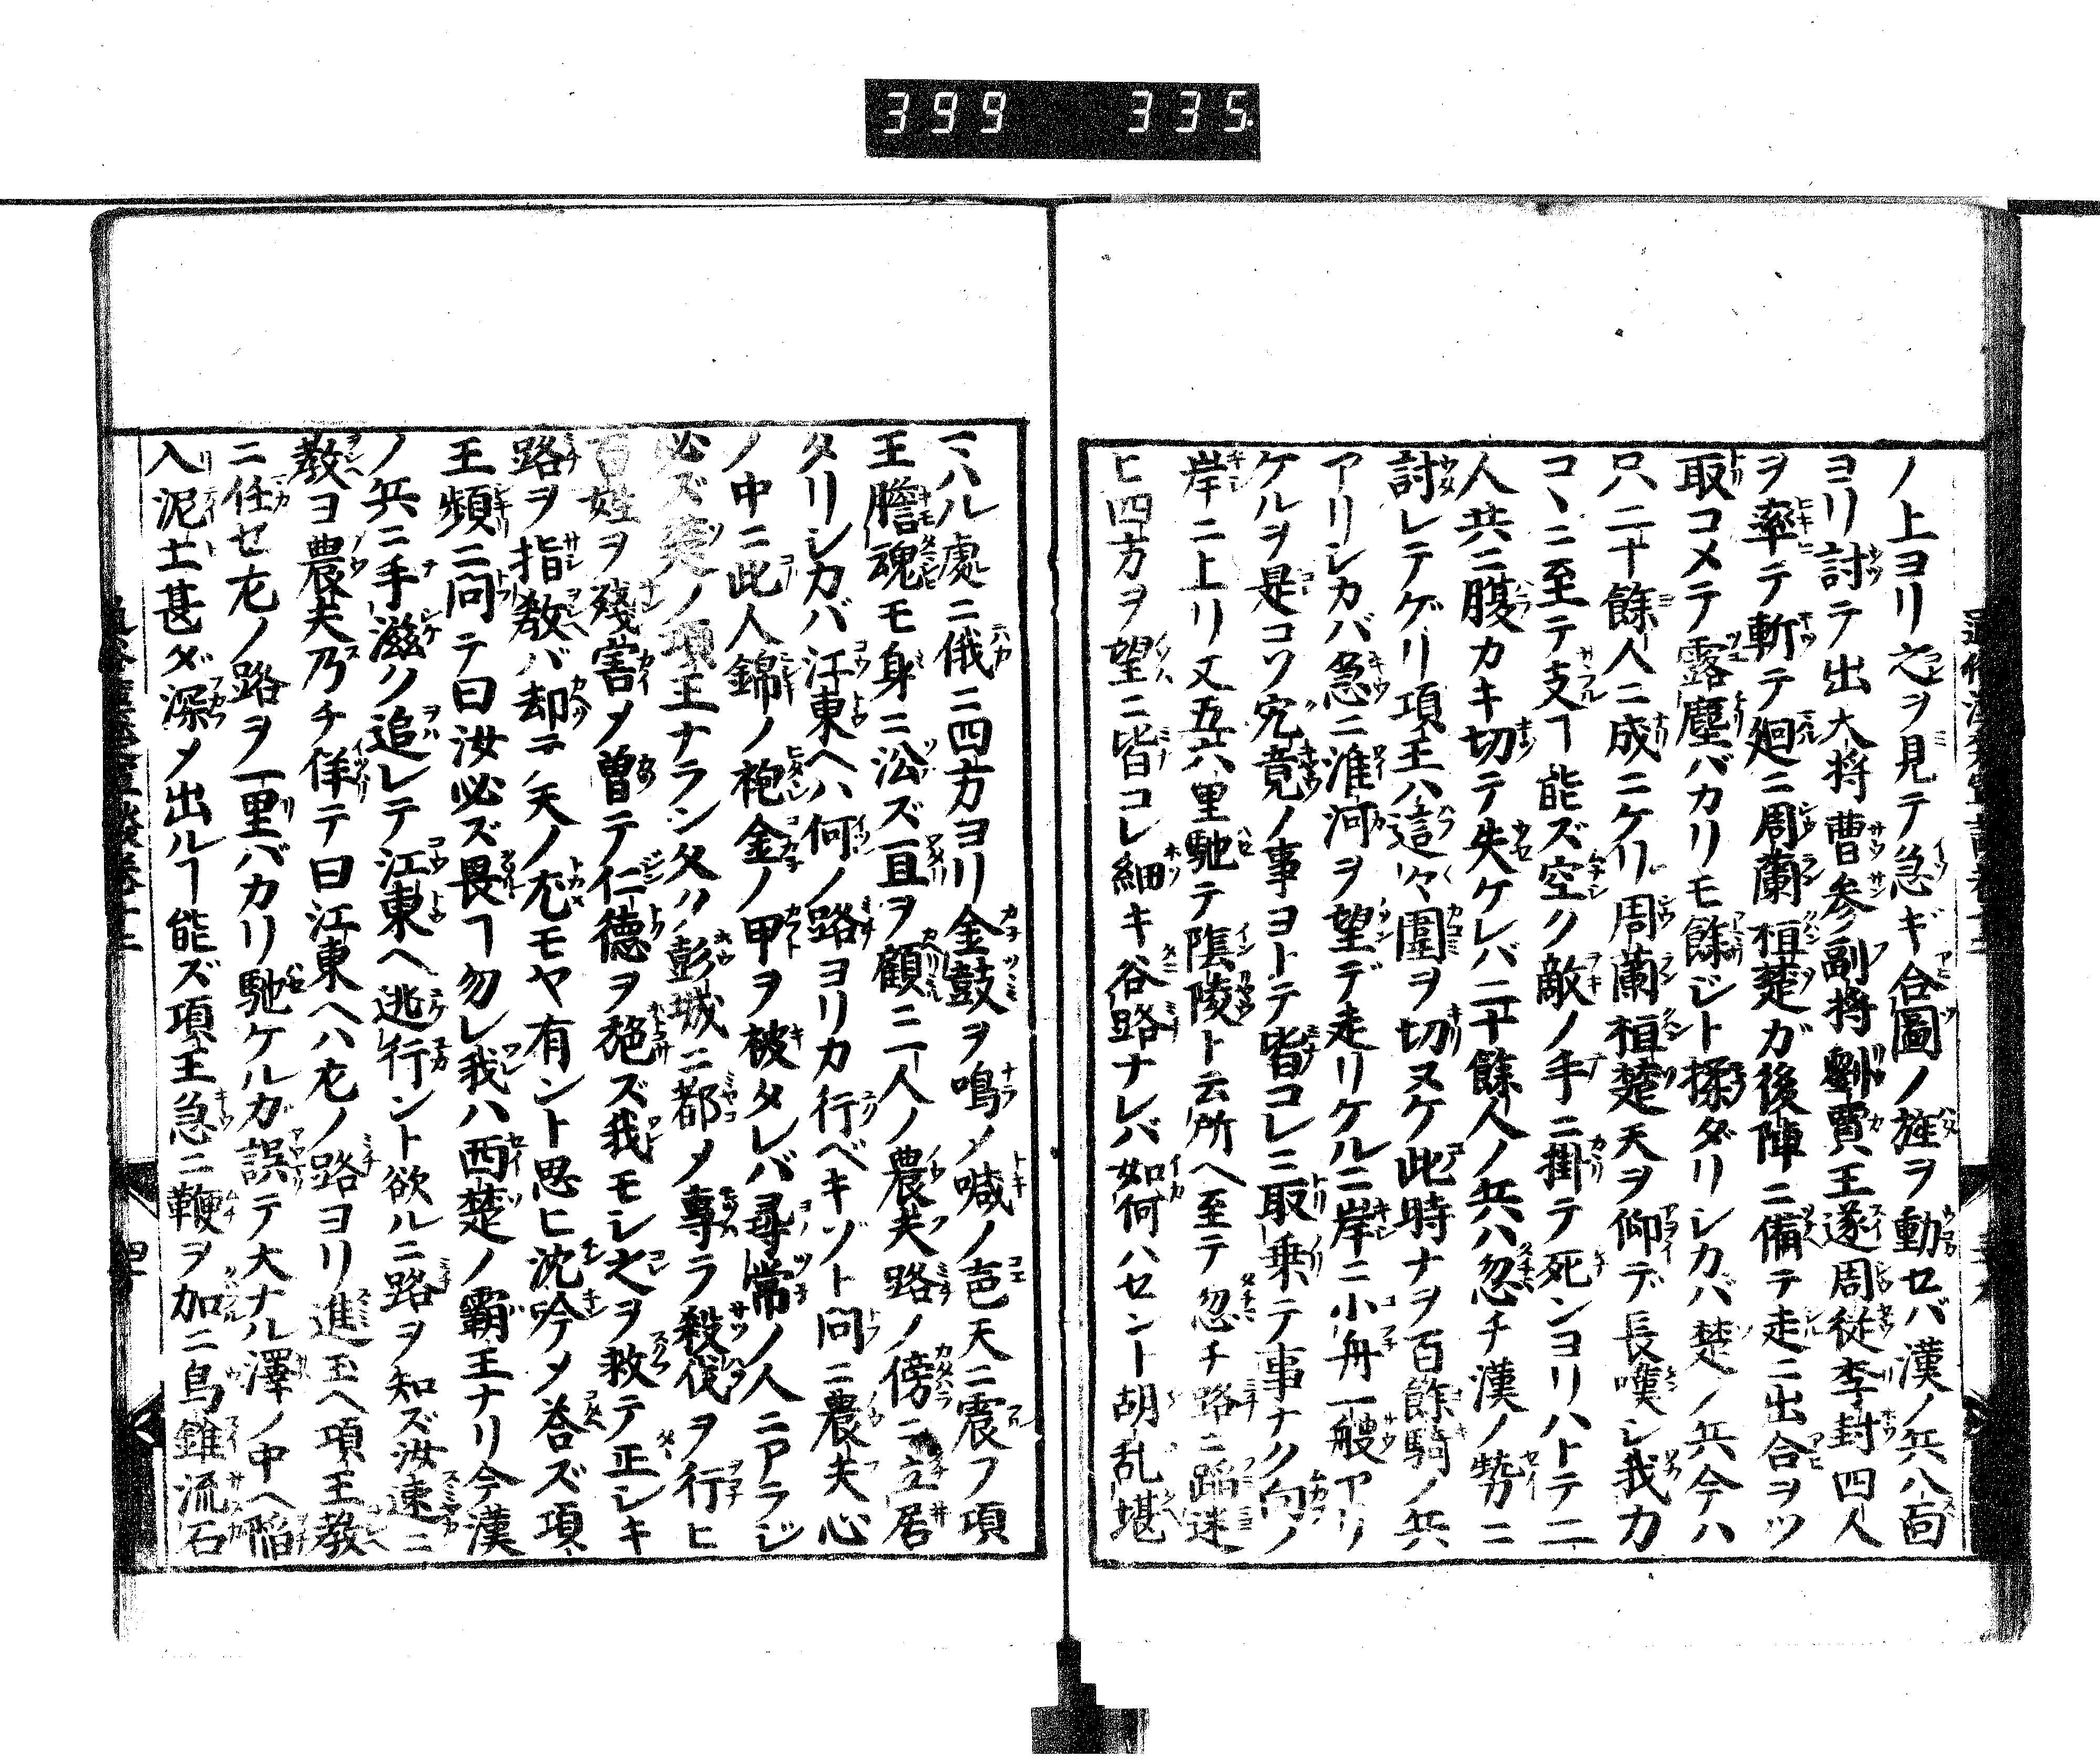 399 335.
ノ上ヨリ之ヲ見テ急ギ合圖ノ旌ヲ動セバ漢ノ兵八面
ヨリ討テ出大将曹参副将劉賈王遂周従李封四人
ヲ率テ斬テ廻ニ周蘭桓楚ガ後陣ニ備テ走ニ出合ヲツ
取コメテ露塵バカリモ餘ジト揉ダリシカバ楚ノ兵今ハ
只二十餘人ニ成ニケリ周蘭桓楚天ヲ仰デ長嘆シ我力
コヽニ至テ支ヿ能ズ空ク敵ノ手ニ掛テ死ンヨリハトテ二
人共ニ腹カキ切テ失ケレバ二十餘人ノ兵ハ忽チ漢ノ勢ニ
討レテゲリ項王ハ這々圍ヲ切ヌケ此時ナヲ百餘騎ノ兵
アリシカバ急ニ淮河ヲ望デ走リケルニ岸ニ小舟一艘アリ
ケルヲ是コソ究竟ノ事ヨトテ皆コレニ取乗テ事ナク向ノ
岸ニ上リ又五六里馳テ陰陵ト云所ヘ至テ忽チ路ニ蹈迷
ヒ四方ヲ望ニ皆コレ細キ谷路ナレバ如何ハセント胡乱堪
ニハル處ニ俄ニ四方ヨリ金鼓ヲ鳴メ喊ノ声天ニ震フ項
王膽魂モ身ニ添ズ且ヲ顧ニ一人ノ農夫路ノ傍ニ立居
タリシカバ江東ヘハ何ノ路ヨリカ行ベキゾト問ニ農夫心
ノ中ニ此人錦ノ袍金ノ甲ヲ被タレバ尋常ノ人ニアラジ
必ズ楚ノ項王ナラン久ク彭城ニ都メ専ラ殺伐ヲ行ヒ
百姓ヲ殘害メ曽テ仁德ヲ施ズ我モシ之ヲ救テ正シキ
路ヲ指教バ却テ天ノ尤モヤ有ント思ヒ沈吟メ答ズ項
王頻ニ問テ曰汝必ズ畏ヿ勿レ我ハ西楚ノ覇王ナリ今漢
ノ兵ニ手滋ク追レテ江東ヘ逃行ント欲ルニ路ヲ知ズ汝速ニ
教ヨ農夫乃チ佯テ曰江東ヘハ左ノ路ヨリ進玉ヘ項王教
ニ任セ左ノ路ヲ一里バカリ馳ケルガ誤テ大ナル澤ノ中ヘ陷
入泥土甚ダ深メ出ルヿ能ズ項王急ニ鞭ヲ加ニ烏錐流石